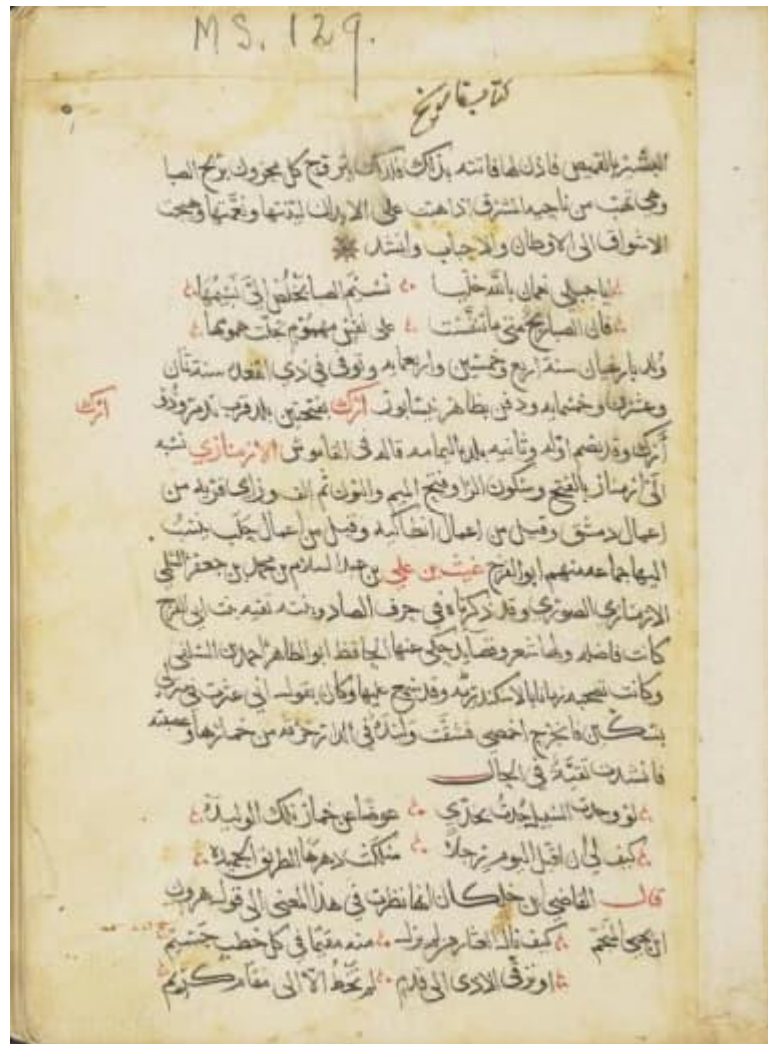 MS. 129.
كتاب تاريخ
البشير بالقميص فاذن لها فاتته بذلك فلذلك يتروح كل محزون بريح الصبا
وهي تهب من ناحيه المشرق اذا هبت على الابدان لينتها ونعمتها وهيجت
الاشواق الى الاوطان والاحباب وانشد
ايا جبلي نعمان بالله خليا نسيم الصبا يخلص الي نسيمها
فان الصبا ريح متى ما تنفست على نفس مهموم تجلت همومها
ولد بارغيان سنة اربع وخمسين واربعمايه وتوفى في ذي القعده سنة ثمان
وعشرين وخمسمايه ودفن بظاهر نيسابور ارك بفتحتين بلد قرب تدمر وذو
ارك
أرك وقد يضم اوله وثانيه بلد باليمامه قاله في القاموس الارمنازي نسبه
الى ارمناز بالفتح وسكون الرا وفتح الميم والنون ثم الف وزاى قريه من
اعمال دمشق وقيل من اعمال انطاكيه وقيل من اعمال حلب ينسب
اليها جماعه منهم ابو الفرج غيث بن علي بن عبد السلام بن محمد بن جعفر
الارمنازي الصوري وقد ذكرناه في حرف الصاد وبنته تقيه بنت ابي الفرج
كانت فاضله ولها شعر وقصايد حكى عنها الحافظ ابو الطاهر احمد السلفي
وكانت تصحبه زمانا بالاسكندريه وقد شيخ عليها وكان يقول اني عثرت في منزلي
بسكين فانجرح اخمصي فشقت وليدة في الدار خرقه من خمارها وعصبته
فانشدت تقية في الحال
لو وجدت السبيل جدت بخدي عوضا عن خمار تلك الوليده
كيف لي ان اقبل اليوم رجلا سلكت دهرها الطريق الحميده
قال القاضي ابن خلكان انها نظرت في هذا المعنى الى قول هرون
ابن يحيى المنجم كيف نال العثار من لم يزل منه مقيما في كل خطب جسيم
او ترقى الاذى الى قدم لم تخط الا الى مقام كريم